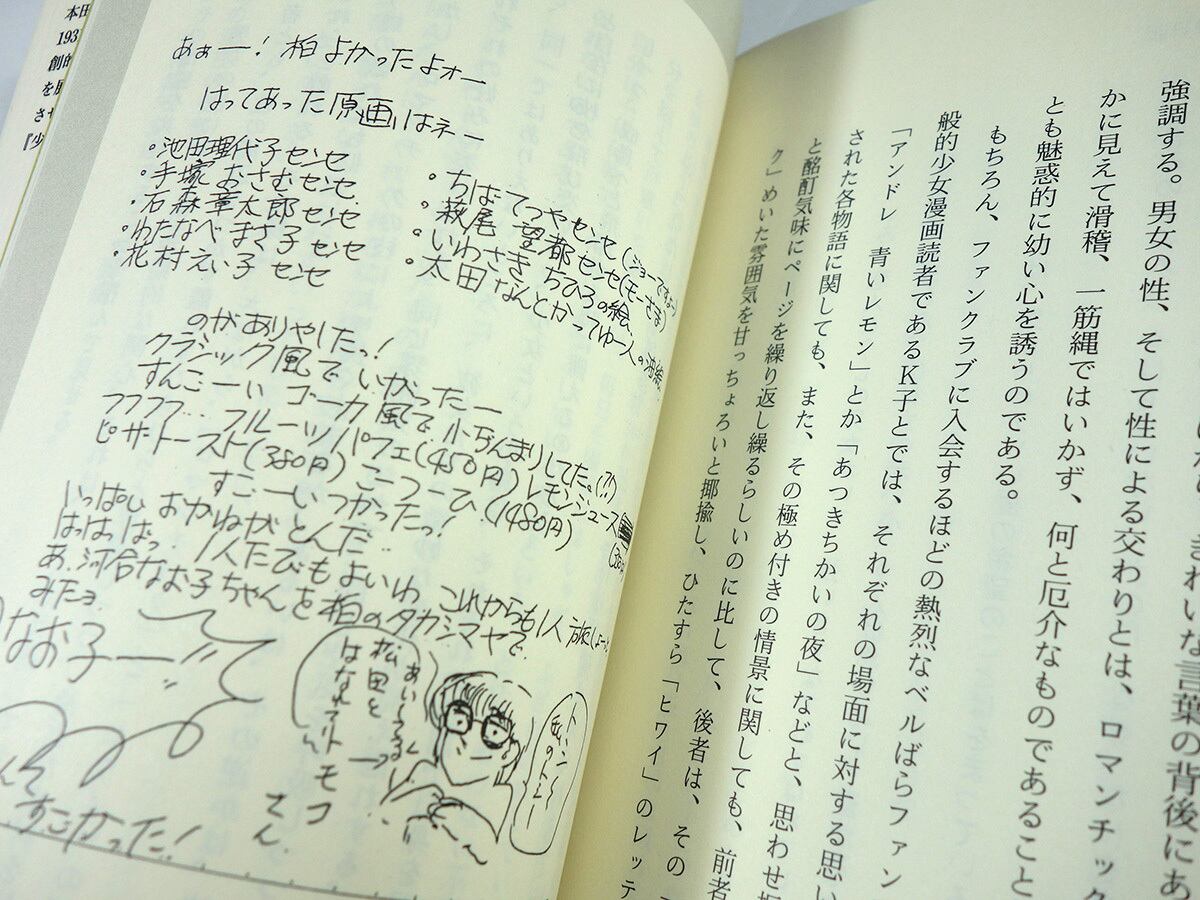 本田
193
創的
を
さ
『少
あぁー!柏よかったよォー
はってあった原画はネー
・池田理代子センセ
・手塚おさむセンセ
・石森章太郎センセ
・わたなべまさ子センセ
・花村えい子センセ
・ちばてつやセンセ(ジョーですよっ)
・萩尾望都センセ(モーさま)
・いわさきちひろの絵、
・太田なんとかってゆー人の
のがありやしたっ!
クラシック風でいがったー
すんごーいゴーカ風で小ぢんまりしてた。(?!)
フフフフ…フルーツパフェ(450円)レモンジュース
ピザトースト(380円)こーつーひ(1480円)
すごーいつかったっ!
いっぱいおかねがとんだ…
はははっ。1人たびもよいわ これからも1人旅しよーっと
あ、河合なお子ちゃんを柏のタカシマヤで
みたョ
なお子ー
すごかった!
あいしてるよ
松田と
はなれてトモコ
さん
強調する。男女の性、そして性による交わりとは、ロマンチック
かに見えて滑稽、一筋縄ではいかず、何と厄介なものであること
とも魅惑的に幼い心を誘うのである。
もちろん、ファンクラブに入会するほどの熱烈なベルばらファン
般的少女漫画読者であるK子とでは、それぞれの場面に対する思い
「アンドレ 青いレモン」とか「あつきちかいの夜」などと、思わせ
された各物語に関しても、また、その極め付きの情景に関しても、前者
と酩酊気味にページを繰り返し繰るらしいのに比して、後者は、その
ク」めいた雰囲気を甘っちょろいと揶揄し、ひたすら「ヒワイ」のレッテ